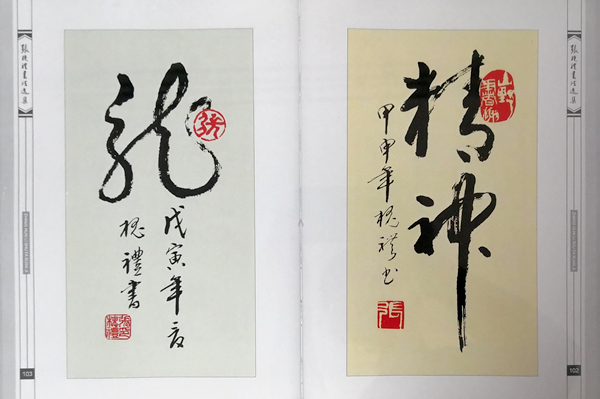 張槐禮書法選集
精神
甲申年槐礼书
張
102
張槐禮書法選集
龙
張
戊寅年夏
槐禮書
103